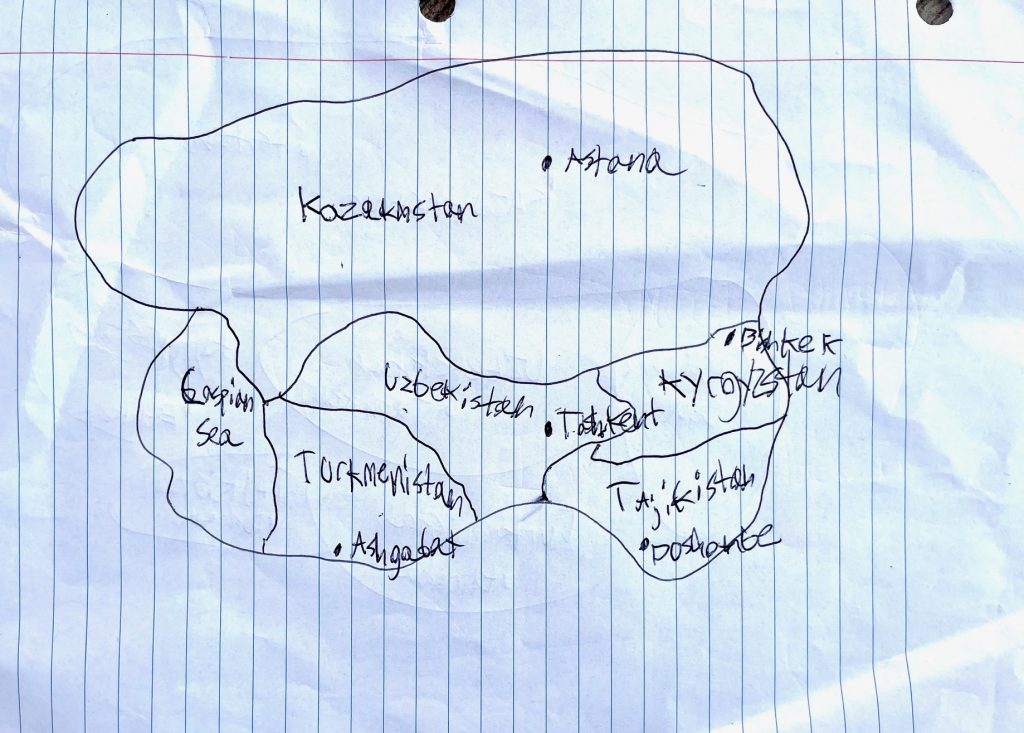 Astana
Kazakhstan
Bishkek
Kyrgyzstan
Uzbekistan
Caspian
sea
Tashkent
Turkmenistan
Tajikistan
Ashgabat
Doshanbe